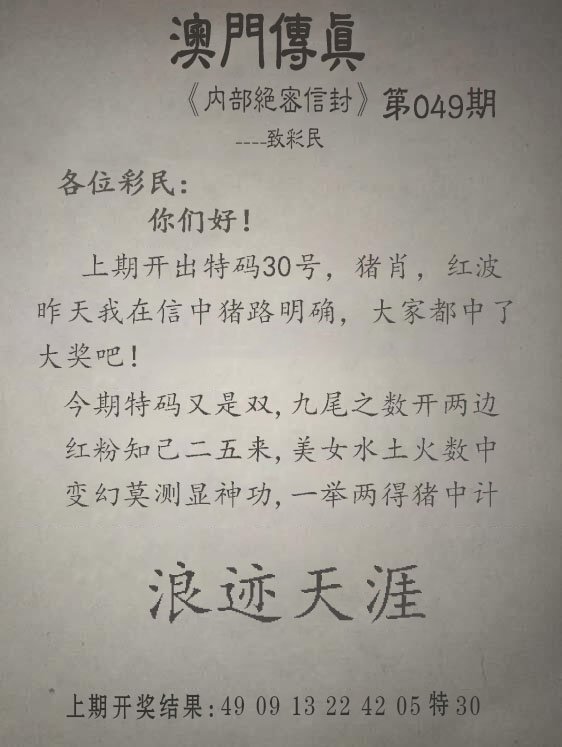 澳門傳真
《内部絕密信封》第049期
----致彩民
各位彩民：
你们好！
上期开出特码30号，猪肖，红波
昨天我在信中猪路明确，大家都中了
大奖吧！
今期特码又是双,九尾之数开两边
红粉知己二五来,美女水土火数中
变幻莫测显神功,一举两得猪中计
浪迹天涯
上期开奖结果:49 09 13 22 42 05特30